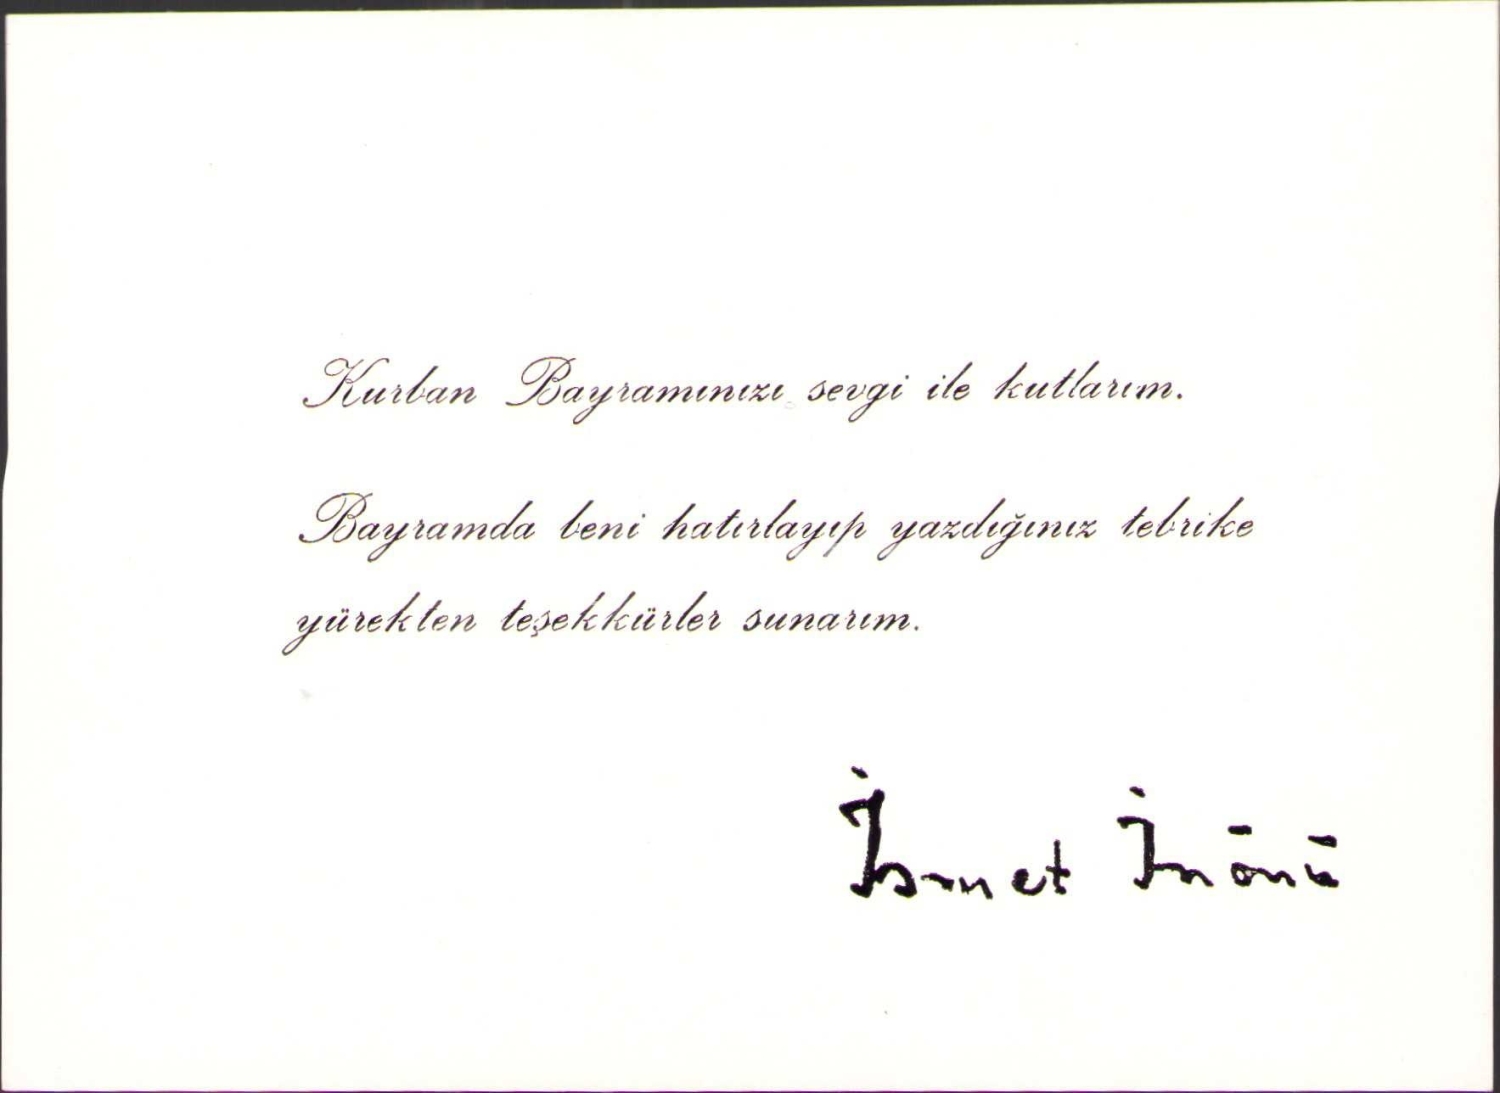 Kurban Bayramınızı sevgi ile kutlarım.
Bayramda beni hatırlayıp yazdığınız tebrike
yürekten teşekkürler sunarım.
İsmet İnönü